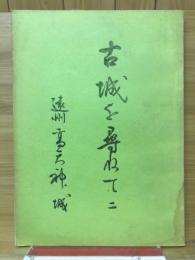 古城を尋ねて 二
遠州 高天神城